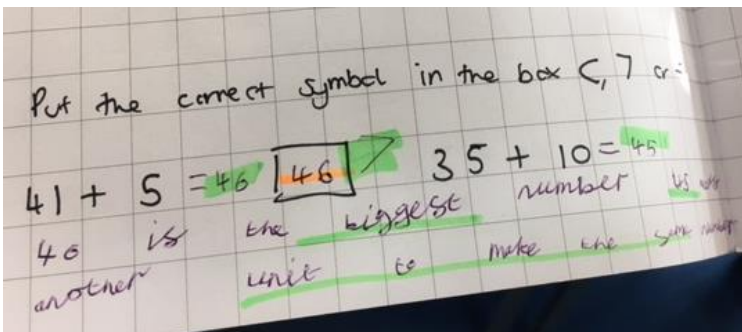 Put the correct symbol in the box <, > or =
41 + 5 = 46 46 > 35 + 10 = 45
46 is the biggest number 45
another unit to make the same number